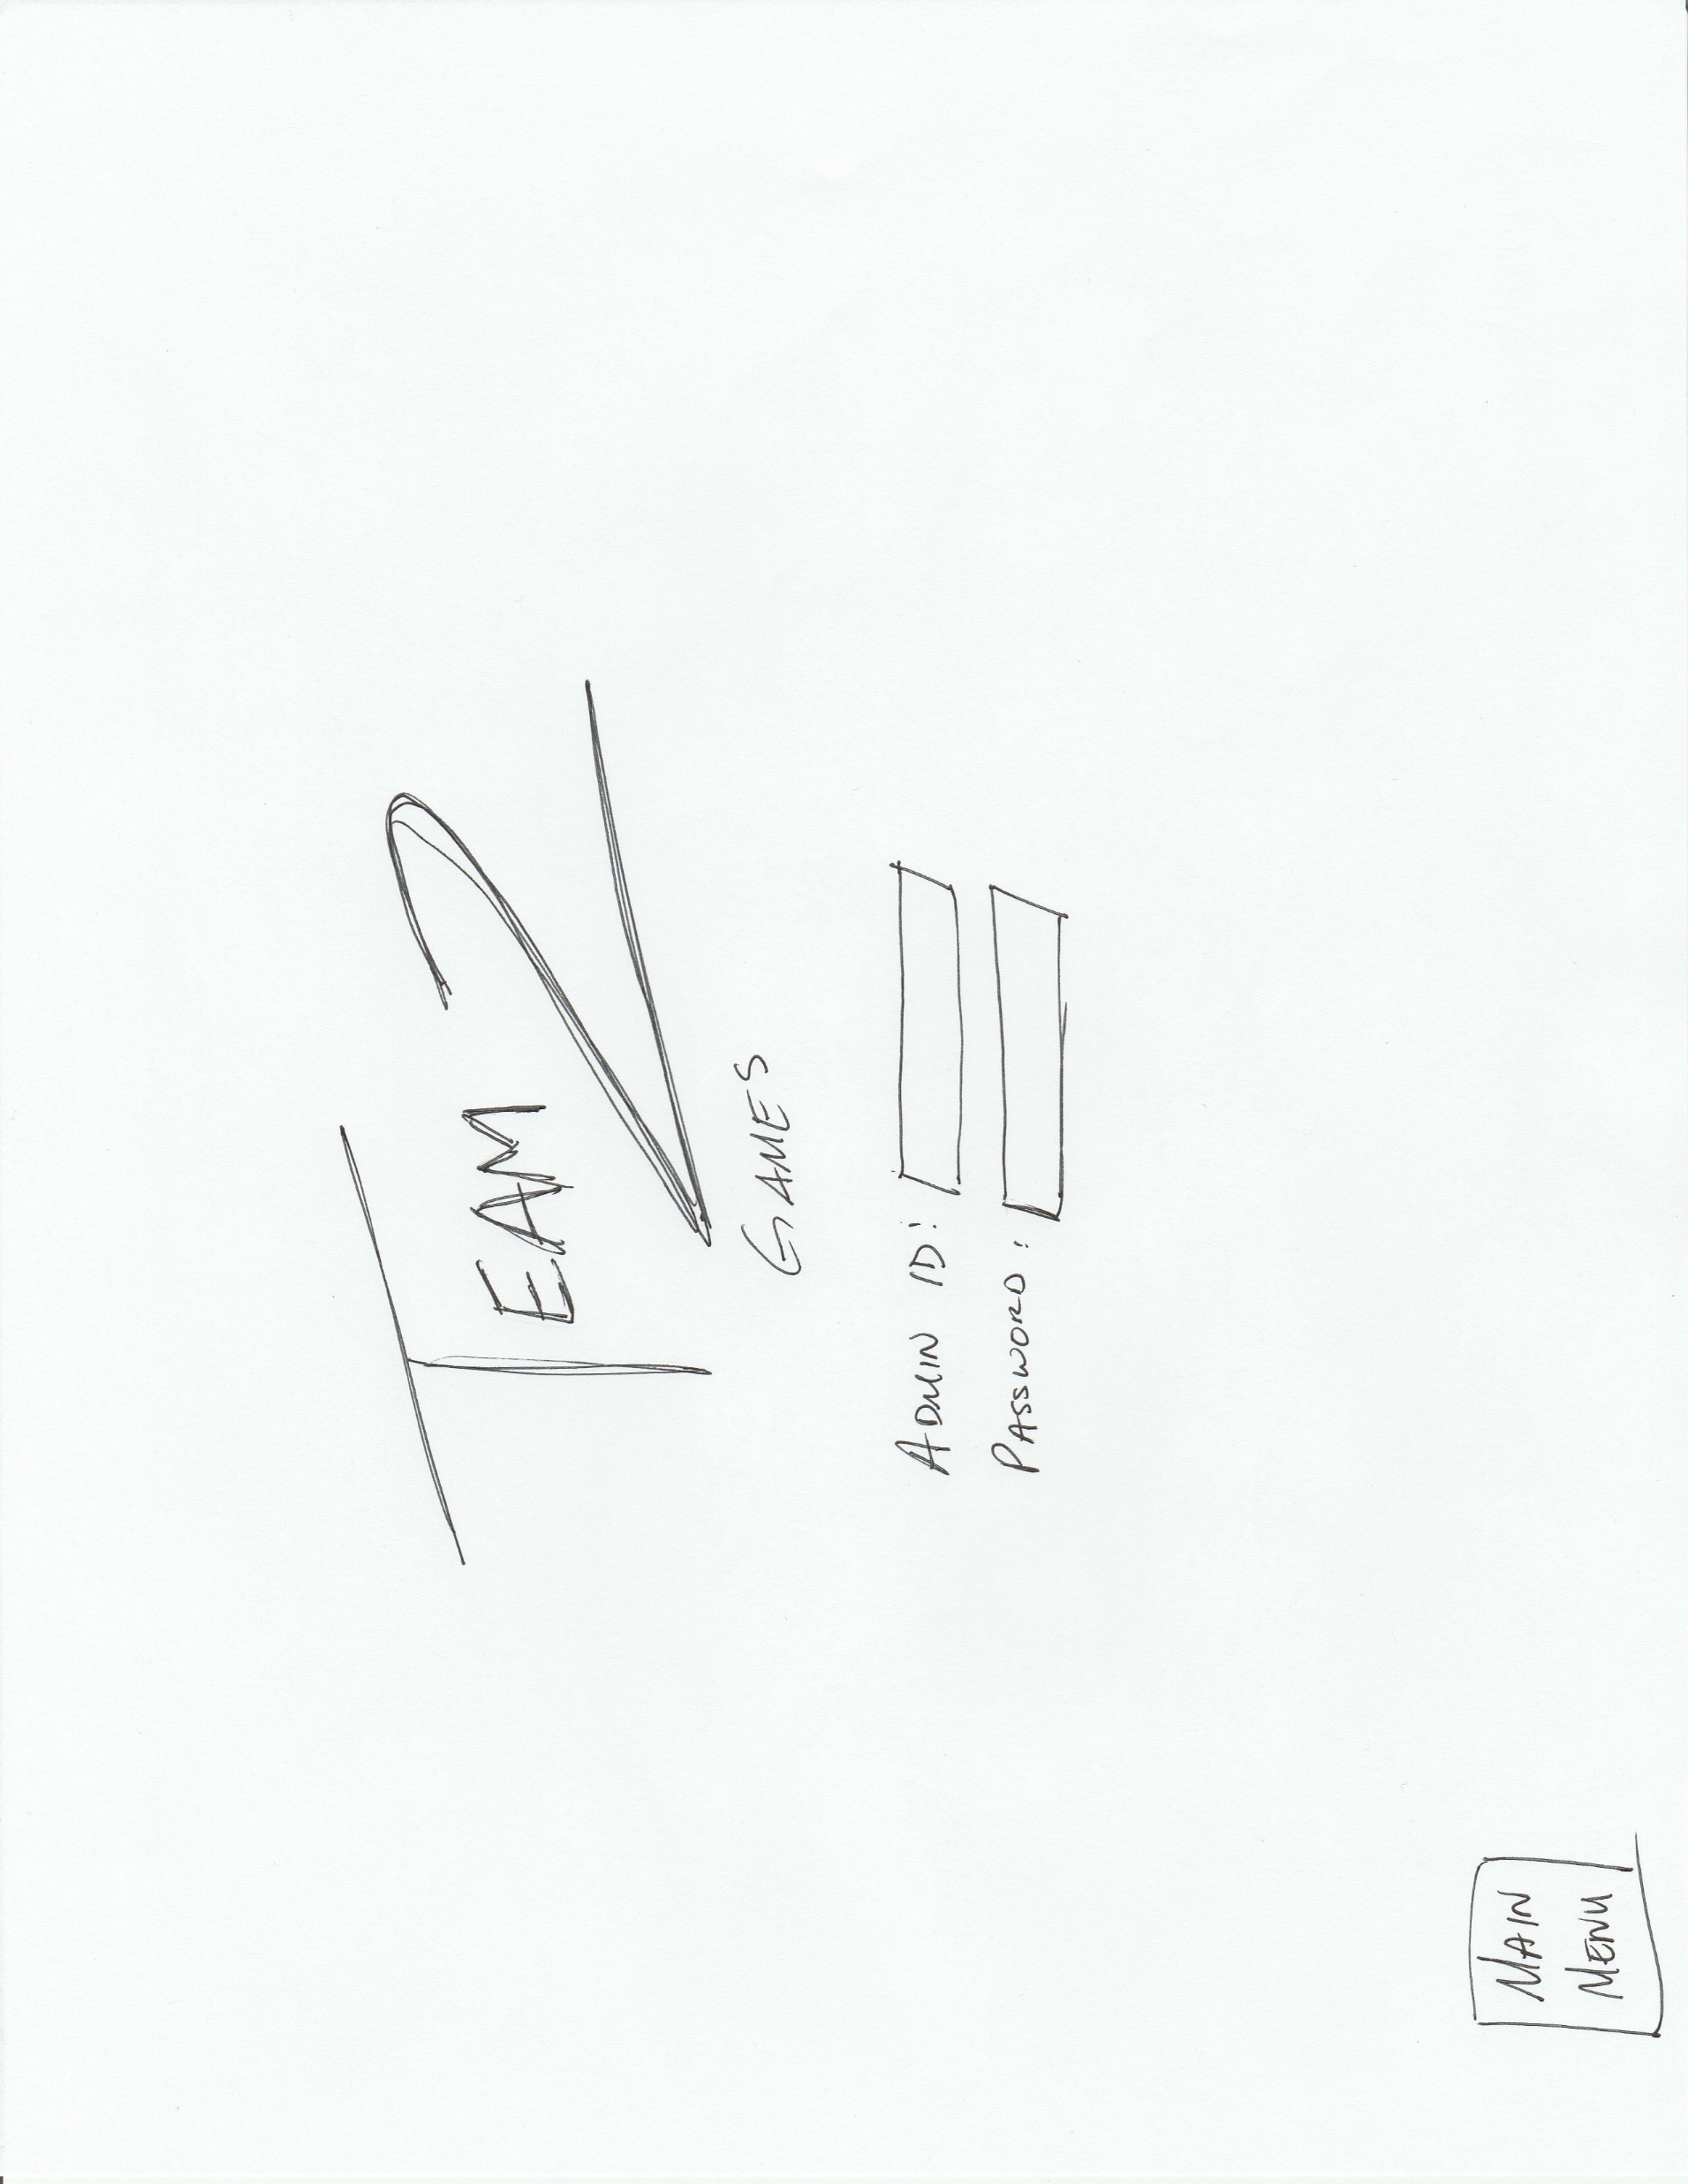 TEAM 2
GAMES
ADMIN ID:
PASSWORD:
MAIN
MENU